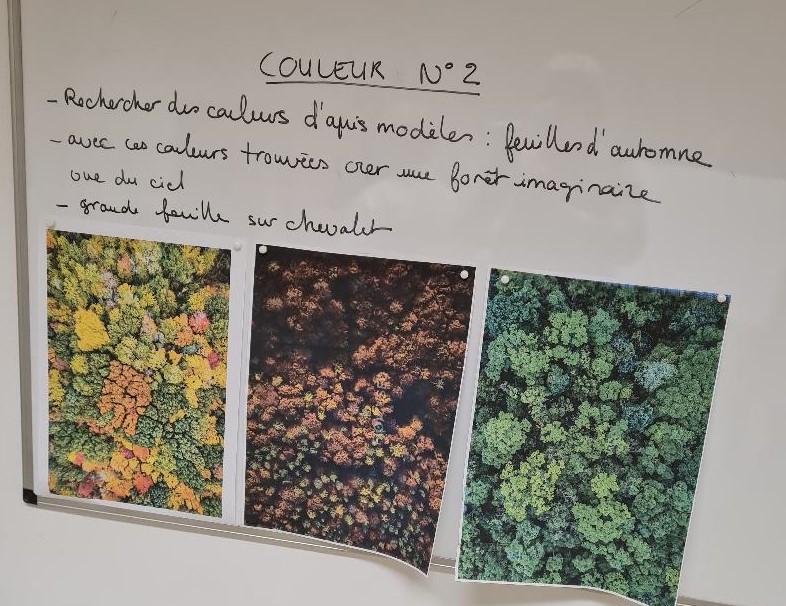 COULEUR N° 2
- Rechercher des couleurs d'après modèles : feuilles d'automne
- avec ces couleurs trouvées créer une forêt imaginaire
vue du ciel
- grande feuille sur chevalet